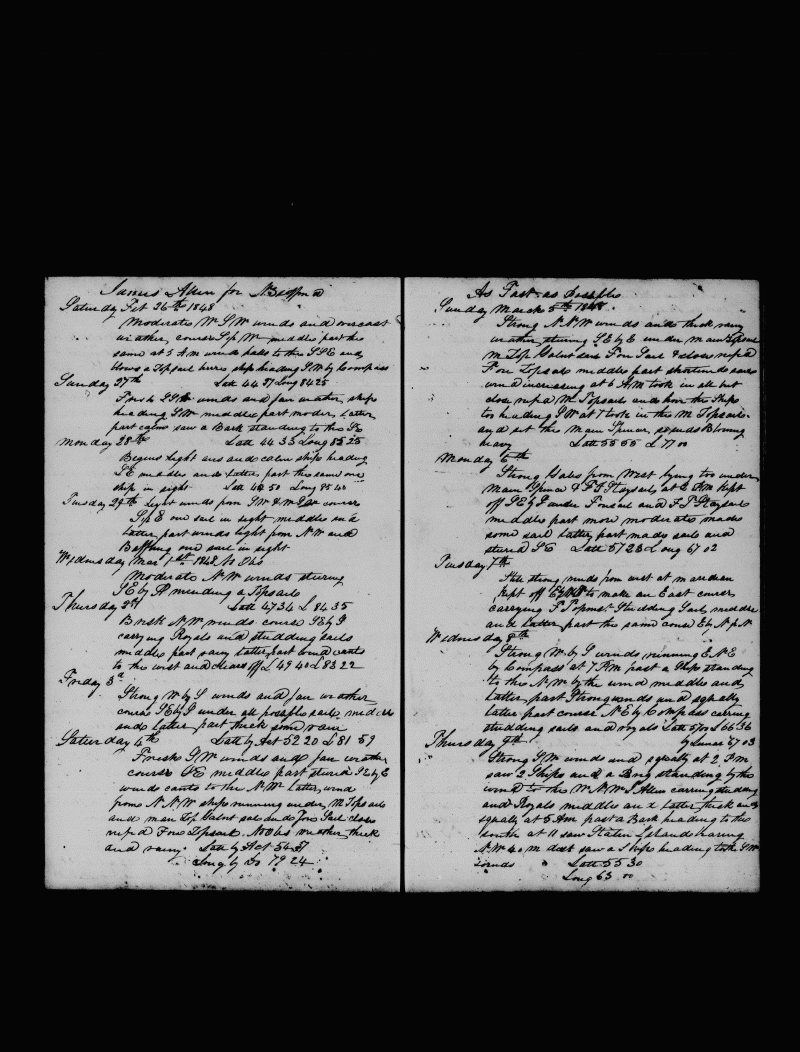 James Allen for N Bedford
Saturday Feb 26th 1848
Moderate W S W winds and overcast
weather, course S by W middle part the
same at 5 A m winds hales to the S S E and
blows a Topsail breeze ship heading S W by Compass
Sunday 27th Latt 44 37 Long 84 25
Fresh S S W winds and fair weather ship
heading S W middle part moder, latter
part calm saw a Bark standing to the
Monday 28th Latt 44 35 Long 85 25
Begins Light airs and calm ship heading
S E middle and latter part the same one
ship in sight Latt 44 50 Long 85 40
Tuesday 29th Light winds from S W & W S W course
S by E one sail in sight middle and
latter part winds light from N W and
Baffling one sail in sight
Wednesday Mar 1st 1848 No Obs
Moderate N W winds stering
S E by S mending a Topsails
Thursday 2d Latt 47 34 L 84 35
Brisk N W winds course S E by S
carrying Royals and studding sails
middle part rainy latter part wind cants
to the west and clears off L 49 40 L 83 22
Friday 3d
Strong W by S winds and fair weather
course S E by S under all possable sails, middle
and latter part thick some rain
Saturday 4th Latt by Act 52 20 L 81 59
Fresh S W winds and fair weather
course S E middle part stered S E by E
winds cants to the N W latter, wind
from N N W ship running under M Topsails
and main Top Galant sail and Fore Sail close
refd Fore Topsail. No Obs weather thick
and rainy. Latt by Act 54 37
Long by Do 79 24
As Fast as Possable
Sunday March 5th 1848
Strong N N W winds and thick rainy
weather, stering S E by E under main Topsail
M Top Galant sail Fore Sail & close refd
Fore Topsails middle part shortened sail
wind increasing at 6 A M took in all but
close refd M Topsails and hove the Ship
too heading S W at 7 took in the M Topsails
and set the main Spencer, sounds Blowing
heavy Latt 55 55 L 77 00
Monday 6th
Strong Gales from West lying too under
Main Spence & F T Staysail, at 2 P M kept
off S E by S under Foresail and F T Staysail
middle part more moderate made
some sail latter part made sails and
stered S E Latt 57 23 Long 67 02
Tuesday 7th
Still strong winds from west at meredian
kept off to make an East course
carrying F Topmst Studding Sail, middle
and latter part the same course E by N
Wednesday 8th
Strong W by S winds running E N E
by Compass at 7 P M past a Ship standing
to the N W by the wind middle and
latter part Strong winds and squally
latter part course N E by Compass carring
studding sails and royals Latt 57 02 L 66 36
Thursday 9th by Lunar 67 03
Strong S W winds and squally at 2 P m
saw 2 Ships and a Brig standing by the
wind to the W N W J Allen carring studing
and Royals middle and latter thick and
squally at 5 Am past a Bark heading to the
south at 11 saw Staten Island baring
N W 40 m dist saw a Ship heading to the S W
Latt 55 30
Long 63 00